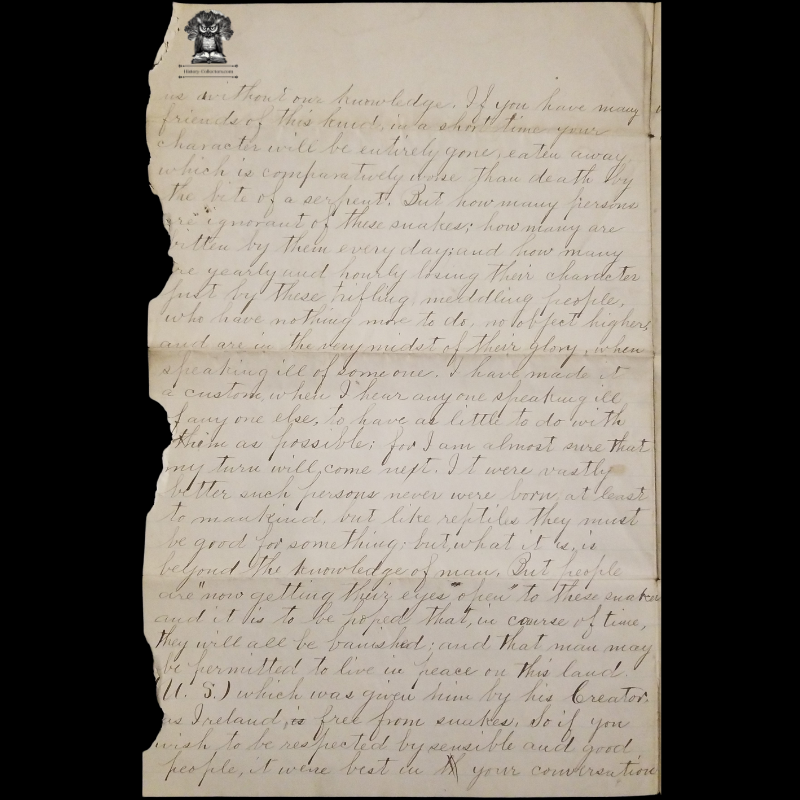 us without our knowledge. If you have many
friends of this kind, in a short time your
character will be entirely gone, eaten away,
which is comparatively worse than death by
the bite of a serpent. But how many persons
are ignorant of these snakes; how many are
bitten by them every day; and how many
are yearly and hourly losing their character
just by these trifling, meddling people,
who have nothing more to do, no object higher,
and are in the very midst of their glory, when
speaking ill of some one. I have made it
a custom, when I hear any one speaking ill
of any one else, to have as little to do with
them as possible; for I am almost sure that
my turn will come next. It were vastly
better such persons never were born, at least
to mankind, but like reptiles they must
be good for something; but, what it is, is
beyond the knowledge of man. But people
are "now getting their eyes "open" to these snakes
and it is to be hoped, that, in course of time,
they will all be banished; and that man may
be permitted to live in peace on this land
(U. S.) which was given him by his Creator,
as Ireland, is free from snakes. So if you
wish to be respected by sensible and good
people, it were best in your conversation